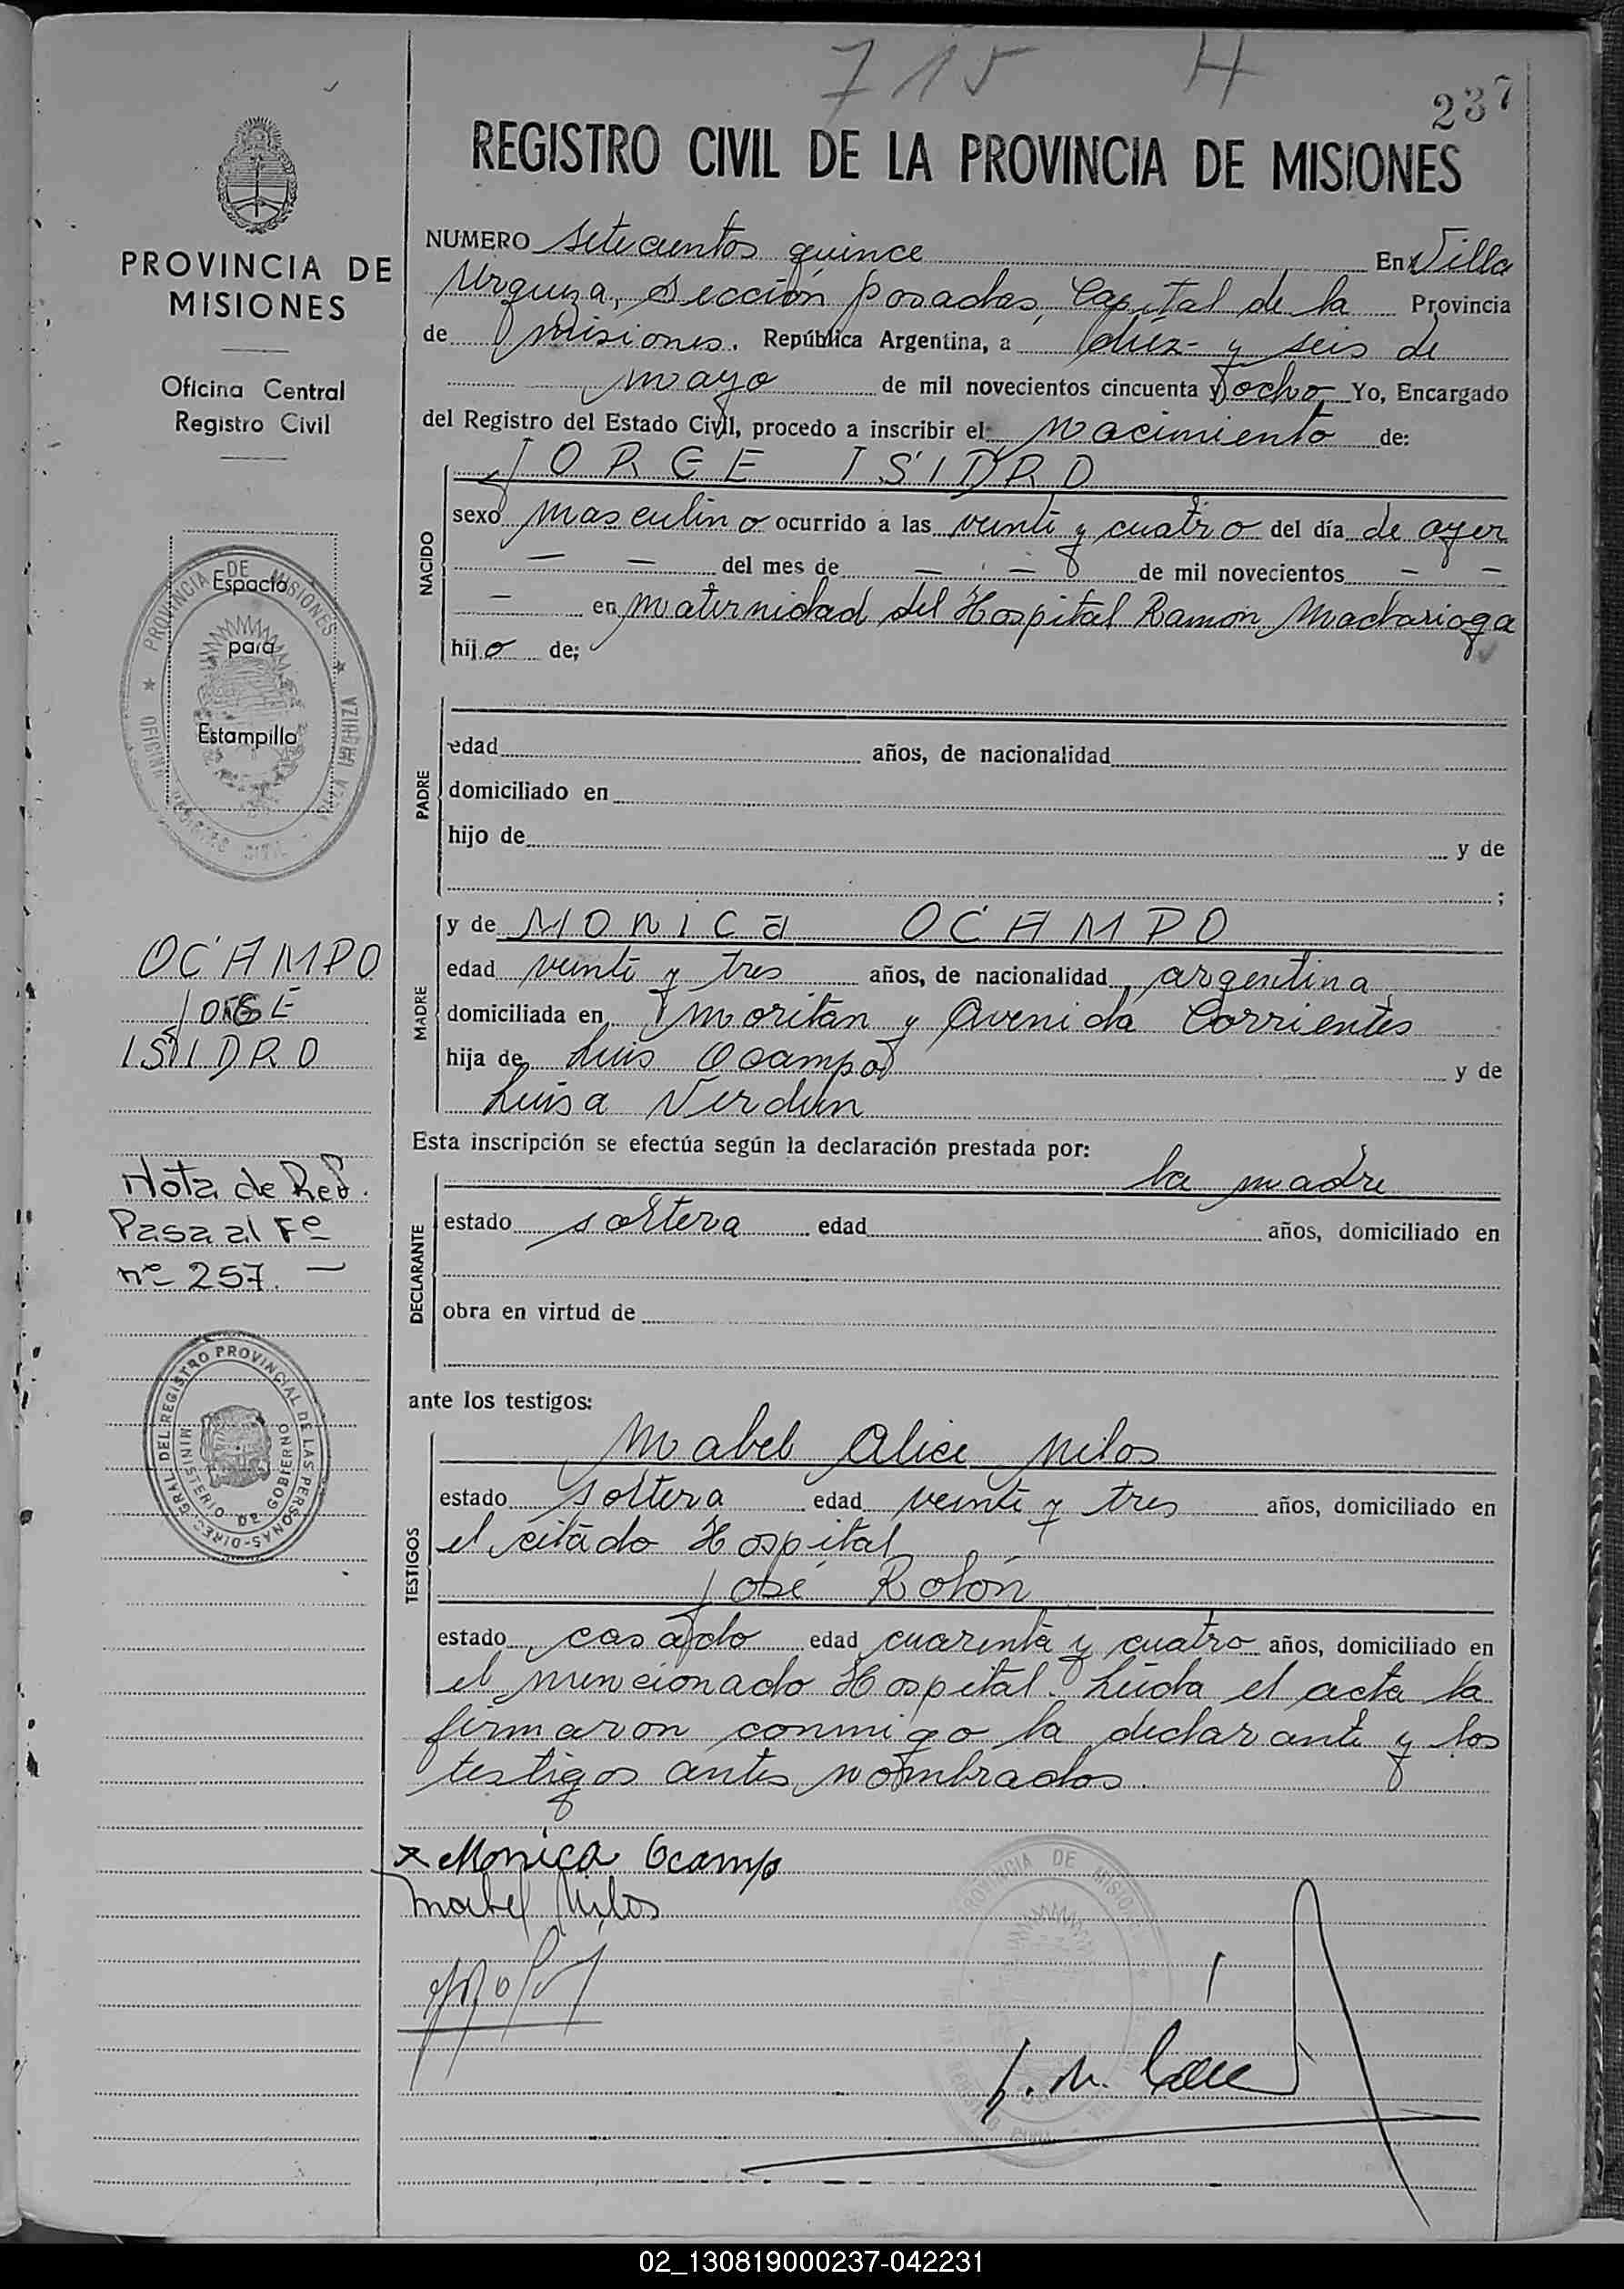 715 H
237
REGISTRO CIVIL DE LA PROVINCIA DE MISIONES
PROVINCIA DE
MISIONES
Oficina Central
Registro Civil
Espacio
para
Estampilla
PROVINCIA DE MISIONES
OCAMPO
JORGE
ISIDRO
Nota de Ref.
Pasa al Fº
nº 257. —
DIREC. GRAL. DEL REGISTRO PROVINCIAL DE LAS PERSONAS
MINISTERIO DE GOBIERNO
NUMERO setecientos quince En Villa
Urquiza, Sección Posadas, Capital de la Provincia
de Misiones. República Argentina, a diez y seis de
mayo de mil novecientos cincuenta y ocho Yo, Encargado
del Registro del Estado Civil, procedo a inscribir el nacimiento de:
NACIDO
JORGE ISIDRO
sexo masculino ocurrido a las veinti y cuatro del día de ayer
— — del mes de — — de mil novecientos — —
— en maternidad del Hospital Ramón Madariaga
hijo de;
PADRE
edad años, de nacionalidad
domiciliado en
hijo de y de
;
MADRE
y de MONICA OCAMPO
edad veinti y tres años, de nacionalidad argentina
domiciliada en Moritán y Avenida Corrientes
hija de Luis Ocampo y de
Luisa Verdun
Esta inscripción se efectúa según la declaración prestada por:
DECLARANTE
la madre
estado soltera edad años, domiciliado en
obra en virtud de
ante los testigos:
TESTIGOS
Mabel Alice Milos
estado soltera edad veinti y tres años, domiciliado en
el citado Hospital
José Rolón
estado casado edad cuarenta y cuatro años, domiciliado en
el mencionado Hospital. Leída el acta la
firmaron conmigo la declarante y los
testigos antes nombrados.
x Monica Ocampo
Mabel Milos
PROVINCIA DE MISIONES
02_130819000237-042231